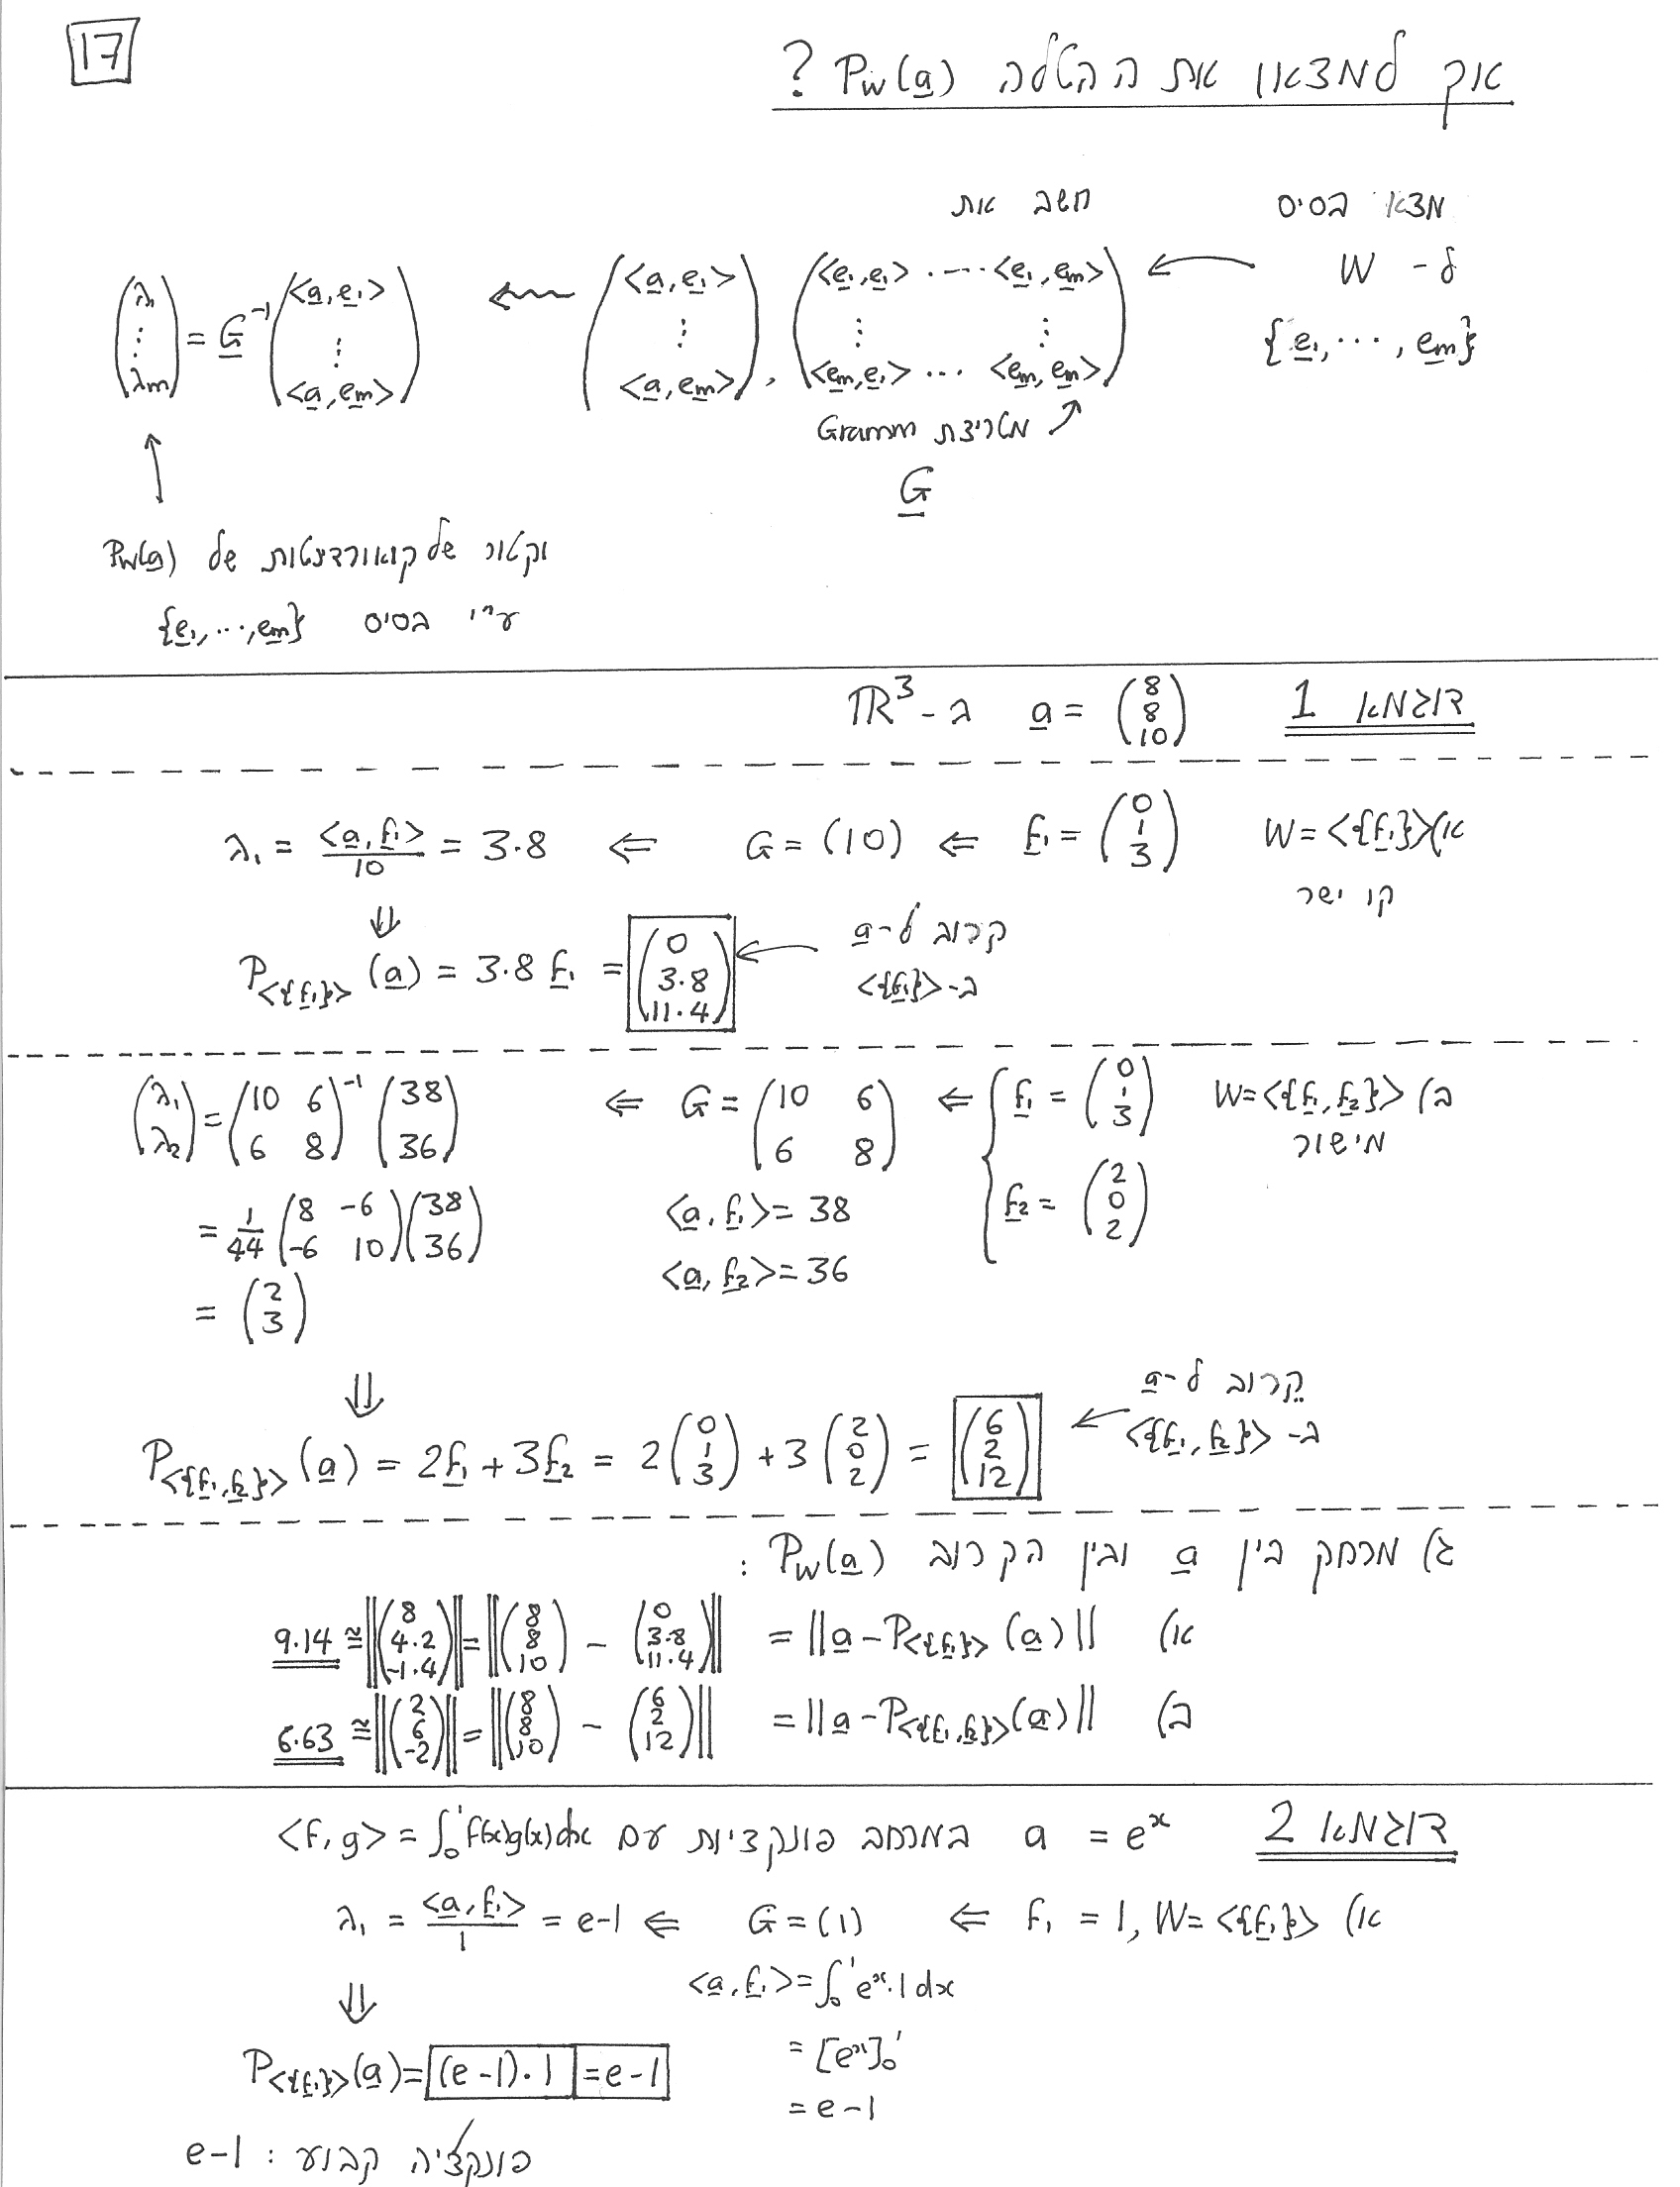 17
איך למצאו את ההטלה P_W(a) ?
מצא בסיס
ל- W
{e₁, ⋯, eₘ}
חשב את
(<a,e₁> ⋮ <a,eₘ>) , (<e₁,e₁> ⋯ <e₁,eₘ> ⋮ ⋮ <eₘ,e₁> ⋯ <eₘ,eₘ>) ←
מטריצת Gramm ↗
G
← (λ₁ ⋮ λₘ) = G⁻¹ (<a,e₁> ⋮ <a,eₘ>)
↑
וקטור של קואורדינטות של P_W(a)
ע"י בסיס {e₁, ⋯, eₘ}
דוגמא 1 a = (8 8 10) ב- ℝ³
א) W = <{f₁}> f₁ = (0 1 3) ⇐ G = (10) ⇐ λ₁ = <a,f₁>/10 = 3.8
קו ישר
⇓
P_<{f₁}>(a) = 3.8 f₁ = (0 3.8 11.4) ← קרוב ל-a
ב-<{f₁}>
ב) W = <{f₁,f₂}> { f₁ = (0 1 3) ⇐ G = (10 6 6 8) ⇐ (λ₁ λ₂) = (10 6 6 8)⁻¹ (38 36)
מישור
f₂ = (2 0 2) <a,f₁> = 38 = 1/44 (8 -6 -6 10)(38 36)
<a,f₂> = 36 = (2 3)
⇓
P_<{f₁,f₂}>(a) = 2f₁ + 3f₂ = 2(0 1 3) + 3(2 0 2) = (6 2 12) ← קרוב ל-a
ב-<{f₁,f₂}>
ג) מרחק בין a ובין הקרוב P_W(a) :
א) 9.14 ≅ ||(8 4.2 -1.4)|| = ||(8 8 10) - (0 3.8 11.4)|| = ||a - P_<{f₁}>(a)||
ב) 6.63 ≅ ||(2 6 -2)|| = ||(8 8 10) - (6 2 12)|| = ||a - P_<{f₁,f₂}>(a)||
דוגמא 2 a = eˣ במרחב פונקציות עם <f,g> = ∫₀¹ f(x)g(x)dx
א) f₁ = 1, W = <{f₁}> ⇐ G = (1) ⇐ λ₁ = <a,f₁>/1 = e-1
<a,f₁> = ∫₀¹ eˣ·1 dx
= [eˣ]₀¹
= e-1
⇓
P_<{f₁}>(a) = (e-1)·1 = e-1
פונקציה קבוע : e-1